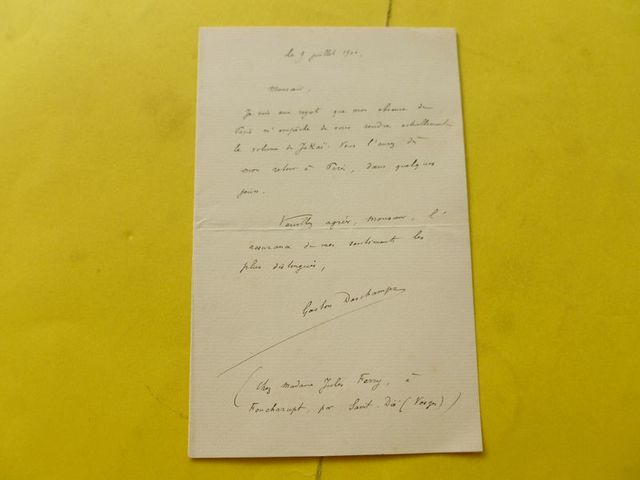 le 9 juillet 1900.
Monsieur,
Je suis aux regret que mon absence de
Paris m'empêche de vous rendre actuellement
le volume de Jokaï. Vous l'aurez dès
mon retour à Paris, dans quelques
jours.
Veuillez agréer, monsieur, l'
assurance de mes sentiments les
plus distingués,
Gaston Deschamps
(Chez madame Jules Ferry, à
Foucharupt, par Saint-Dié (Vosges))